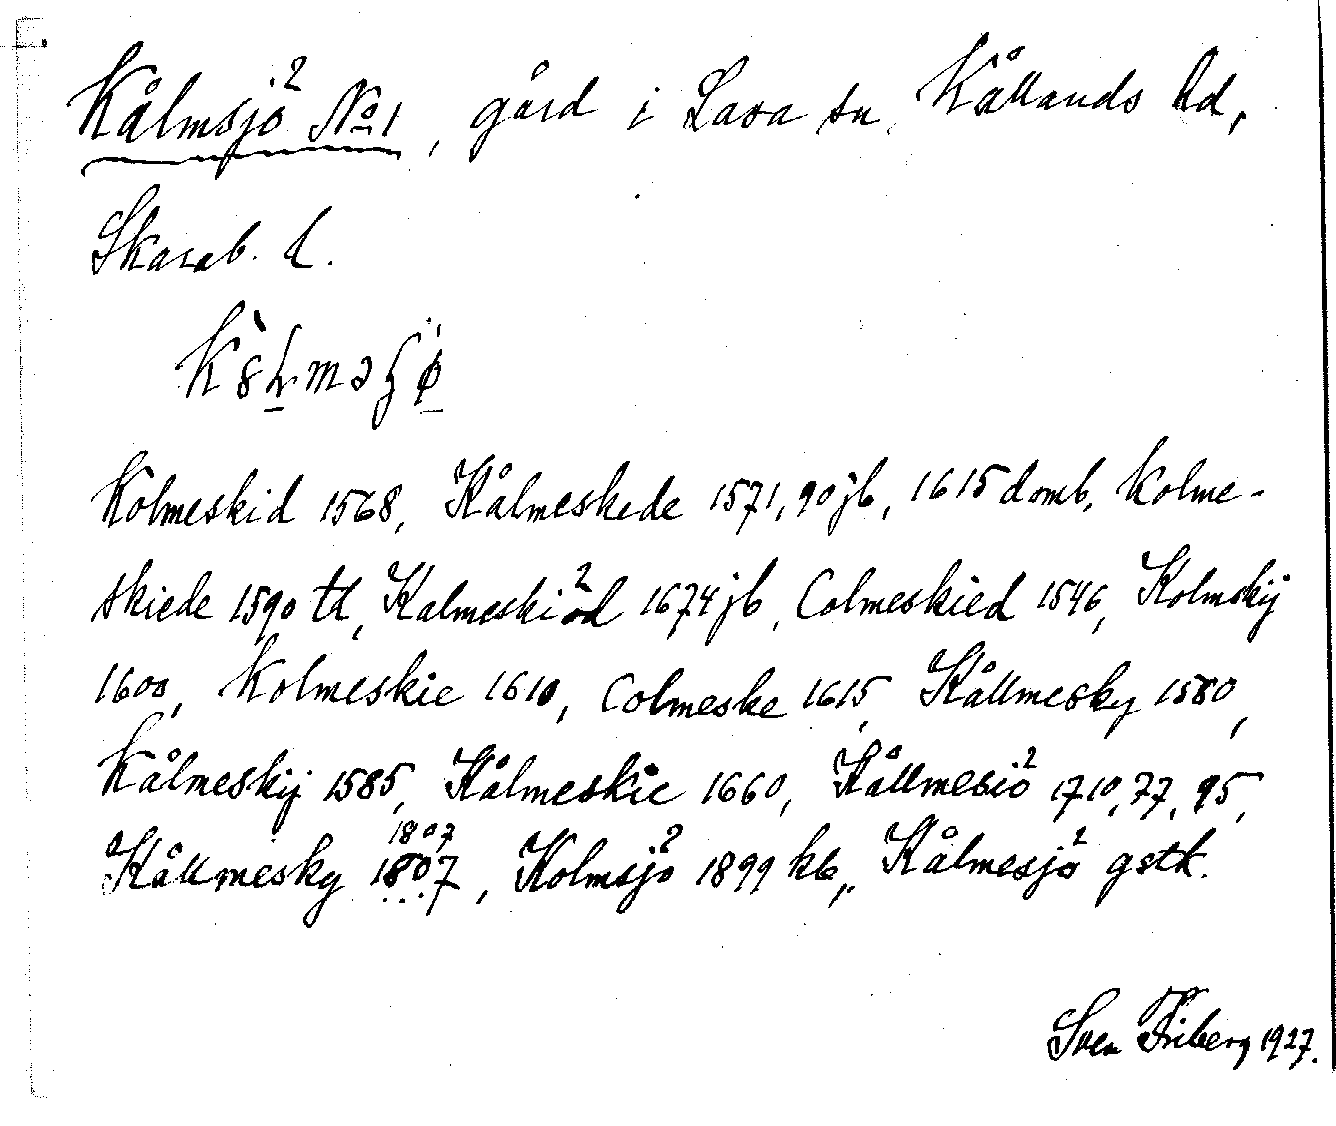 Kålmsjö No 1, gård i Lava sn, Kållands hd,
Skarab. l.
Kolmeskid 1568, Kålmeskede 1571, 90 jb, 1615 domb. Kolme-
skiede 1590 tl, Kalmeskiöd 1674 jb, Colmeskied 1546, Kolmskij
1600, Kolmeskie 1610, Colmeske 1615, Kållmesky 1580,
Kålmeskij 1585, Kålmeskie 1660, Kållmesiö 1710, 77, 95,
1807
Kållmesky 1807, Kolmsjö 1899 kb, Kålmesjö gstk.
Sven Friberg 1927.